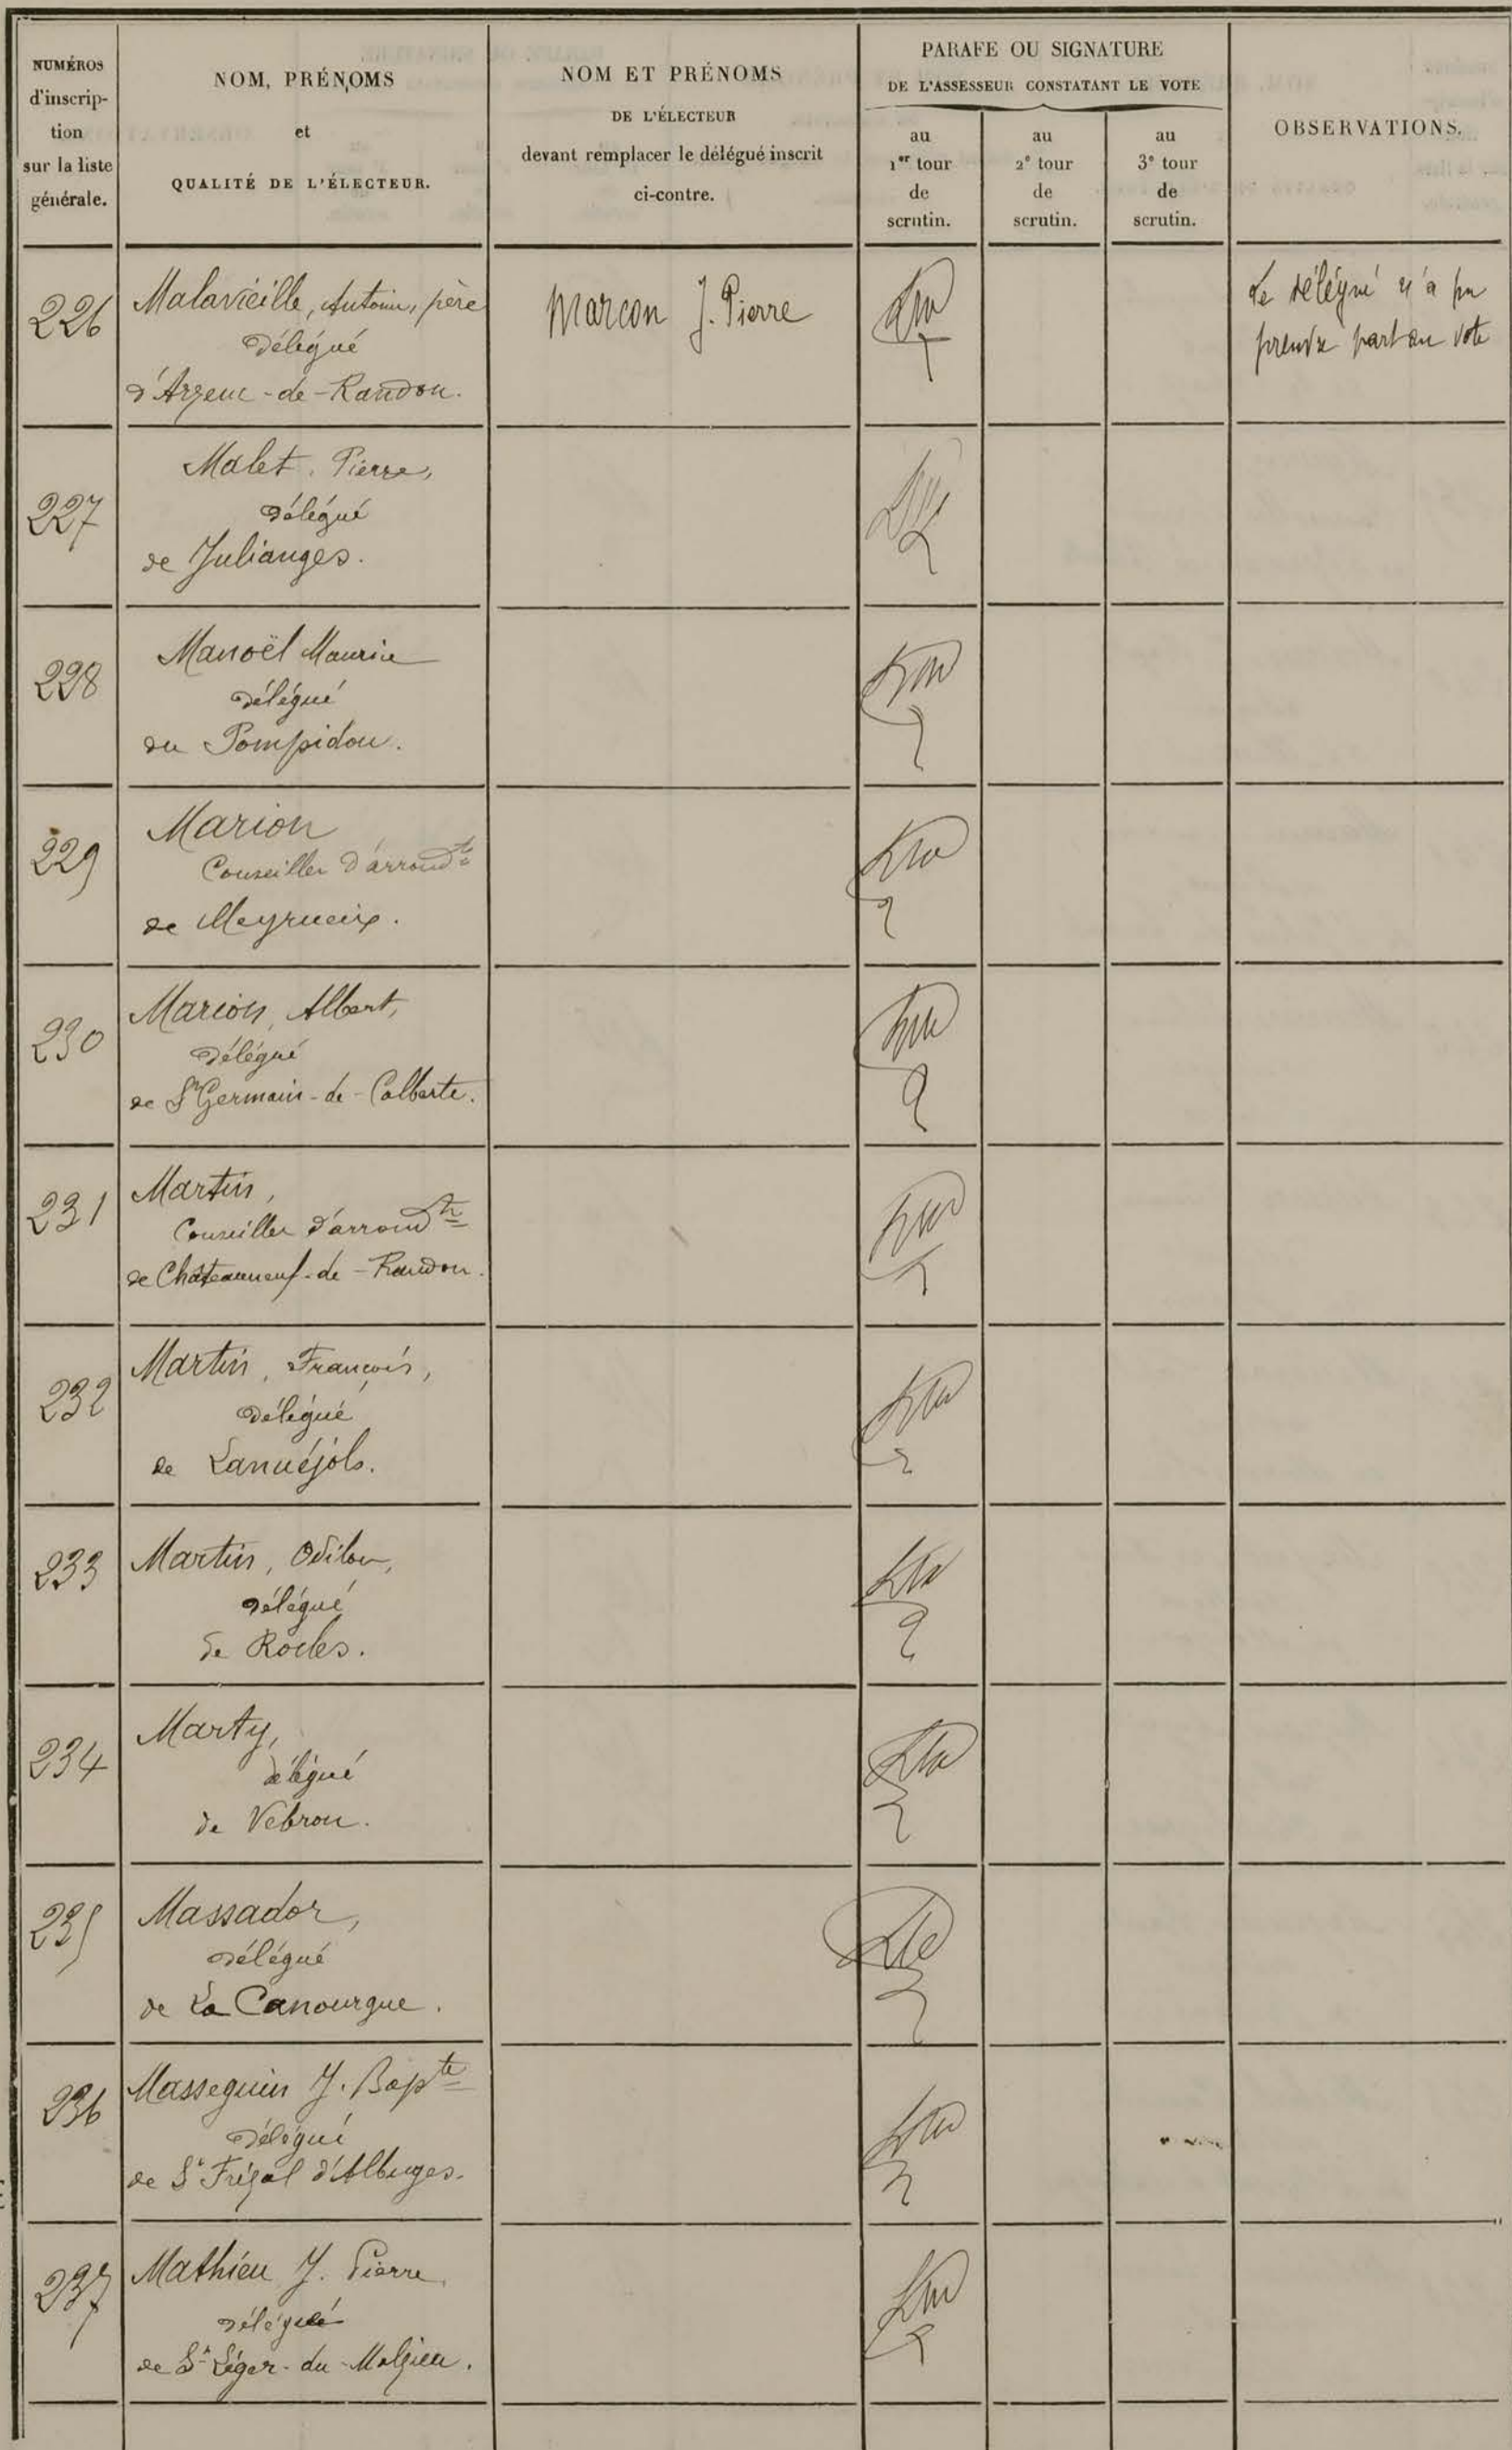 NUMÉROS
d'inscrip-
tion
sur la liste
générale.
NOM, PRÉNOMS
et
QUALITÉ DE L'ÉLECTEUR.
NOM ET PRÉNOMS
DE L'ÉLECTEUR
devant remplacer le délégué inscrit
ci-contre.
PARAFE OU SIGNATURE
DE L'ASSESSEUR CONSTATANT LE VOTE
au
1er tour
de
scrutin.
au
2e tour
de
scrutin.
au
3e tour
de
scrutin.
OBSERVATIONS.
226
Malavieille, Antoine, père
Délégué
d'Arzenc-de-Randon.
Marcon J. Pierre
Le délégué n'a pu
prendre part au vote
227
Malet, Pierre,
Délégué
de Julianges.
228
Manoël Maurice
Délégué
du Pompidou.
229
Marion
Conseiller d'arrondt
de Meyrueix.
230
Marion, Albert,
Délégué
de St Germain-de-Calberte.
231
Martin,
Conseiller d'arrondt
de Châteauneuf-de-Randon.
232
Martin, François,
Délégué
de Lanuéjols.
233
Martin, Odilon,
Délégué
de Rocles.
234
Marty,
délégué
de Vébron.
235
Massador,
Délégué
de La Canourgue.
236
Masseguin J. Bapte
Délégué
de St Frézal d'Albuges.
237
Mathieu J. Pierre,
Délégué
de St Léger-du-Malzieu.